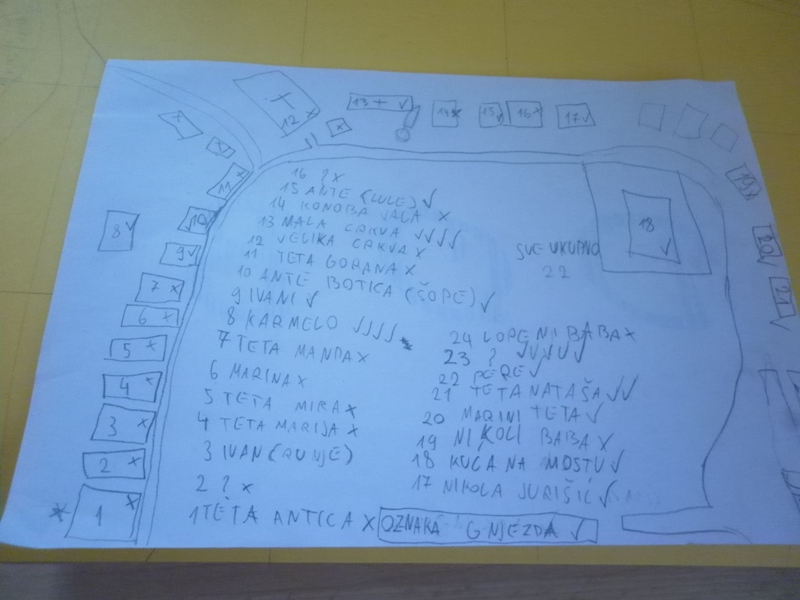 12 x
13 + ✓
14 x
15 ✓
16 x
17 ✓
11 x
10
9 ✓
8 ✓
7 x
6 x
5 x
4 x
3 x
2 x
1 x
18 ✓
19
20
21 ✓
16 ? x
15 ANTE (LULE) ✓
14 KONOBA VALA x
13 MALA CRKVA ✓✓✓✓
12 VELIKA CRKVA x
11 TETA GORANA x
10 ANTE BOTICA (ŠOPE) ✓
9 IVANI ✓
8 KARMELO ✓✓✓✓
7 TETA MANDA x
6 MARINA x
5 TETA MIRA x
4 TETA MARIJA x
3 IVAN (RUNJE)
2 ? x
1 TETA ANTICA x
SVE UKUPNO
22
24 LOPENI BABA x
23 ? ✓✓✓✓✓
22 PERE ✓
21 TETA NATAŠA ✓✓
20 MARINI TETA ✓
19 NIKOLI BABA x
18 KUĆA NA MOSTU ✓
17 NIKOLA JURIŠIĆ ✓
OZNAKA GNJEZDA ✓